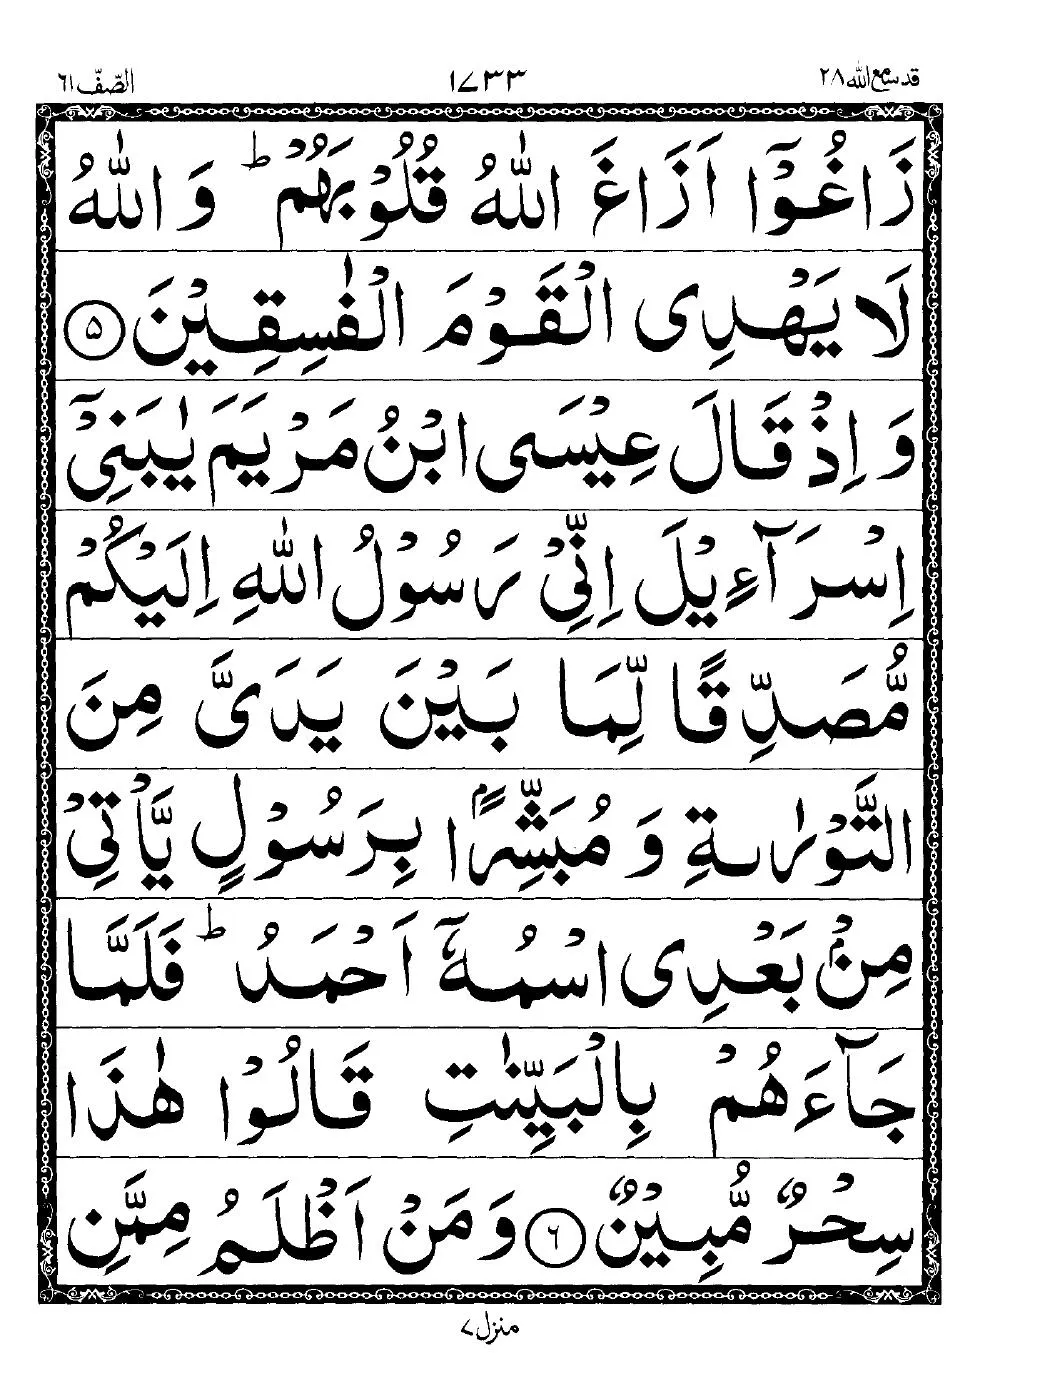 قد سمع الله ٢٨ ١٧٣٣ الصّفّ ٦١
زَاغُوْۤا اَزَاغَ اللّٰهُ قُلُوْبَهُمْ ؕ وَ اللّٰهُ
لَا یَهْدِی الْقَوْمَ الْفٰسِقِیْنَ ۵
وَ اِذْ قَالَ عِیْسَی ابْنُ مَرْیَمَ یٰبَنِیْۤ
اِسْرَآءِیْلَ اِنِّیْ رَسُوْلُ اللّٰهِ اِلَیْكُمْ
مُّصَدِّقًا لِّمَا بَیْنَ یَدَیَّ مِنَ
التَّوْرٰىةِ وَ مُبَشِّرًۢا بِرَسُوْلٍ یَّاْتِیْ
مِنْۢ بَعْدِی اسْمُهٗۤ اَحْمَدُ ؕ فَلَمَّا
جَآءَهُمْ بِالْبَیِّنٰتِ قَالُوْا هٰذَا
سِحْرٌ مُّبِیْنٌ ۶ وَ مَنْ اَظْلَمُ مِمَّنِ
منزل ٧